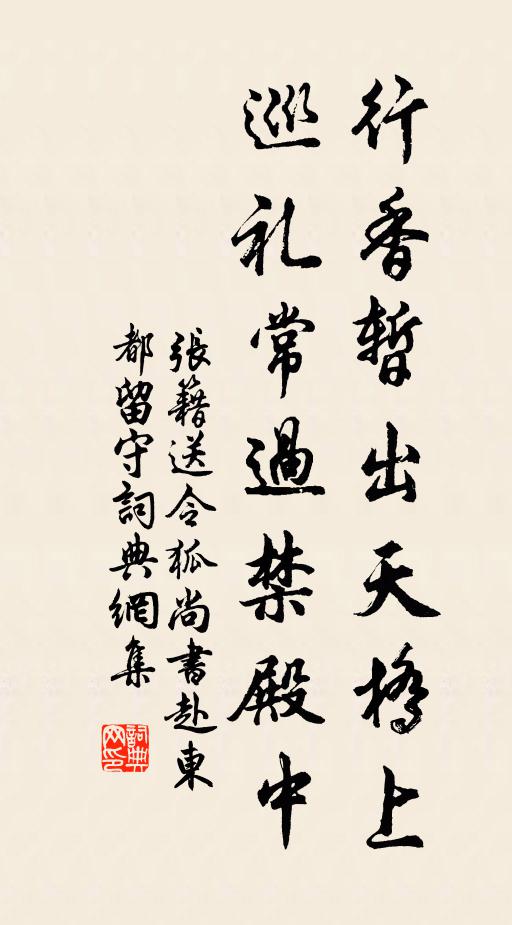 行香暫出天橋上
巡礼常過禁殿中
張籍送令狐尚書赴東
都留守詞典網集
詞典
网印